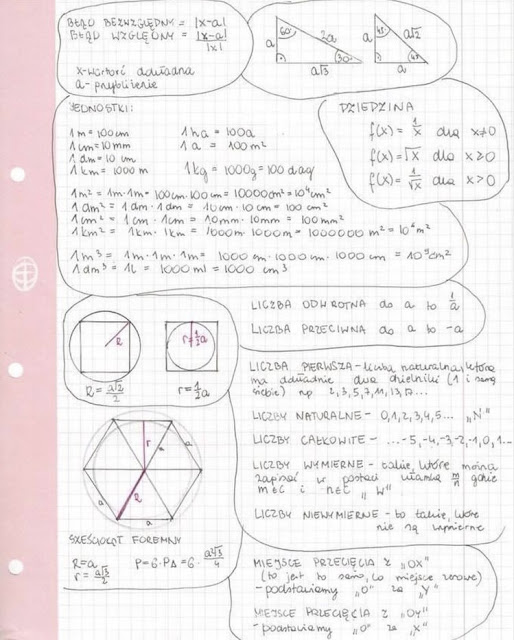 BŁĄD BEZWZGLĘDNY = |x-a|
BŁĄD WZGLĘDNY = |x-a|/|x|
x-wartość dokładna
a-przybliżenie
60° 2a
a
30°
a√3
45° a√2
a
45°
a
JEDNOSTKI:
1m = 100cm 1ha = 100a
1cm = 10mm 1a = 100m²
1dm = 10cm
1km = 1000m 1kg = 1000g = 100dag
1m² = 1m·1m = 100cm·100cm = 10000cm² = 10⁴cm²
1dm² = 1dm·1dm = 10cm·10cm = 100cm²
1cm² = 1cm·1cm = 10mm·10mm = 100mm²
1km² = 1km·1km = 1000m·1000m = 1000000m² = 10⁶m²
1m³ = 1m·1m·1m = 1000cm·1000cm·1000cm = 10⁹cm²
1dm³ = 1l = 1000ml = 1000cm³
DZIEDZINA
f(x) = 1/x dla x≠0
f(x) = √x dla x≥0
f(x) = 1/√x dla x>0
LICZBA ODWROTNA do a to 1/a
LICZBA PRZECIWNA do a to -a
R
r=½a
R = a√2/2 r = ½a
r
R
a
a
a
a
SZEŚCIOKĄT FOREMNY
R=a P=6·P∆=6·a²√3/4
r = a√3/2
LICZBA PIERWSZA - liczba naturalna, która
ma dokładnie dwa dzielniki (1 i samą
siebie) np 2,3,5,7,11,13,17...
LICZBY NATURALNE - 0,1,2,3,4,5... „N"
LICZBY CAŁKOWITE - ...-5,-4,-3,-2,-1,0,1...
LICZBY WYMIERNE - takie, które można
zapisać w postaci ułamka m/n gdzie
m∈C i n∈C „W"
LICZBY NIEWYMIERNE - to takie, które
nie są wymierne
MIEJSCE PRZECIĘCIA Z „OX"
(to jest to samo, co miejsce zerowe)
-podstawiamy „0" za „Y"
MIEJSCE PRZECIĘCIA Z „OY"
-podstawiamy „0" za „X"